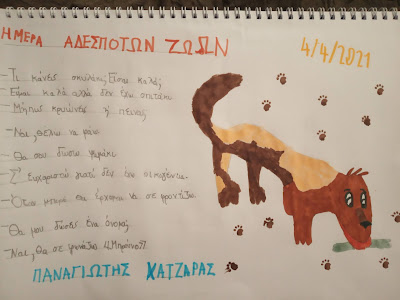 ΗΜΕΡΑ ΑΔΕΣΠΟΤΩΝ ΖΩΩΝ
4/4/2021
-Τι κάνεις σκυλάκι; Είσαι καλά;
-Είμαι καλά αλλά δεν έχω σπιτάκι
-Μήπως κρυώνεις ή πεινάς
-Ναι, θέλω να φάω
-Θα σου δώσω ψωμάκι
-Σ' ευχαριστώ γιατί δεν
-Όποτε μπορώ θα έρχομαι να σε φροντίζω.
-Θα μου δώσεις ένα όνομα;
-Ναι, θα σε φωνάζω
ΠΑΝΑΓΙΩΤΗΣ ΧΑΤΖΑΡΑΣ